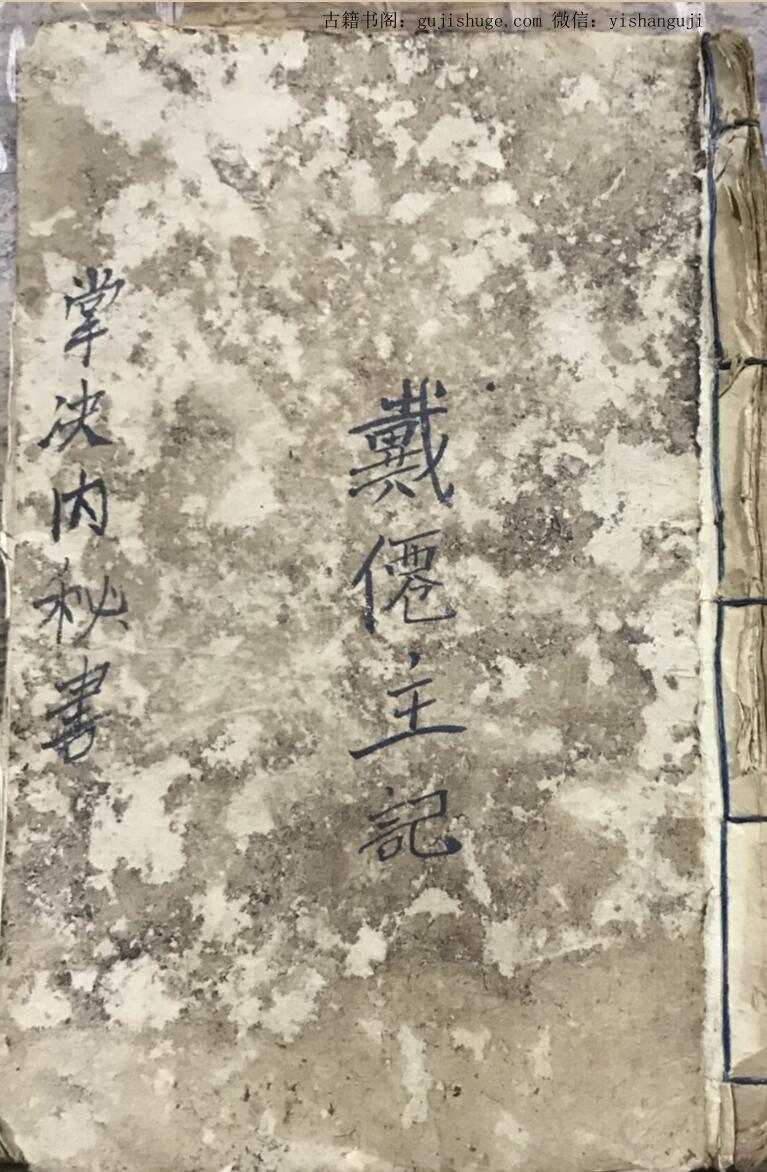 古籍书阁：gujishuge.com 微信：yishanguji
戴僊主記
掌决内秘書